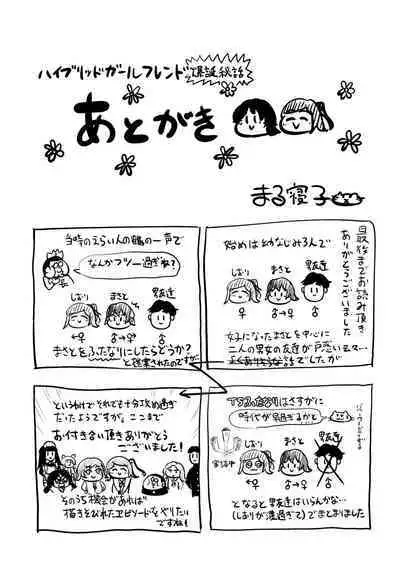 ハイブリッドガールフレンド
爆誕秘話
あとがき
まる寝子
最後までお読み頂き
ありがとうございました
始めは幼なじみ3人で
しおり
まさと
男友達
♀
♂→♀
♂
女子になったまさとを中心に
二人の男女の友達が戸惑い云々…
話でしたが
当時のえらい人の鶴の一声で
なんかフツー過ぎね?
しおり
まさと
男友達
♀
♂→♀
♂
まさとをふたなりにしたらどうか?
と提案されたのですが
TSふたなりはさすがに
時代が早過ぎるかと
しおり
まさと
男友達
♀
♂→♀
となると男友達はいらんかな…
(しおりが濃過ぎて)でまとまりました
というわけでそれでも十分攻め過ぎ
だったようですが、ここまで
お付き合い頂きありがとう
ございました!
そのうち機会があれば
描きそびれたエピソードをやりたい
ですね!